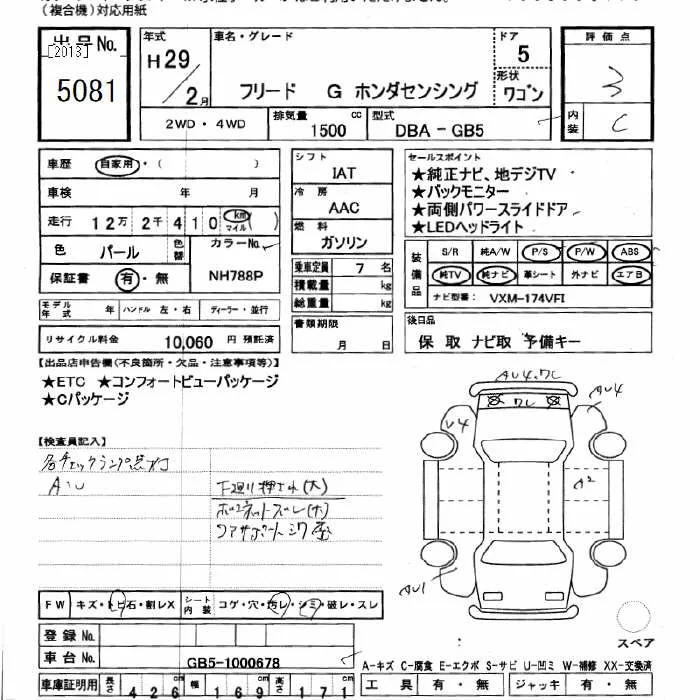 (複合機)対応用紙
出品No.
[2013]
5081
年式
H29/2月
車名・グレード
フリード G ホンダセンシング
ドア
5
形状
ワゴン
評価点
3
内装
C
2WD・4WD
排気量
1500cc
型式
DBA-GB5
車歴 自家用・( )
車検 年 月
走行 12万2千410 km マイル ( )
色 パール 色替
カラーNo.
NH788P
保証書 有・無
シフト
IAT
冷房
AAC
燃料
ガソリン
乗車定員 7名
積載量 kg
総重量 kg
セールスポイント
★純正ナビ、地デジTV
★バックモニター
★両側パワースライドドア
★LEDヘッドライト
装備品
S/R 純A/W P/S P/W ABS
純TV 純ナビ 革シート 外ナビ エアB
ナビ型番: VXM-174VFI
モデル年式 年 ハンドル 左・右 ディーラー・並行
リサイクル料金 10,060円 預託済
書類期限
月 日
後日品
保 取 ナビ取 予備キー
【出品店申告欄(不良箇所・欠品・注意事項等)】
★ETC ★コンフォートビューパッケージ
★Cパッケージ
【検査員記入】
各チェックランプ点灯
AU
下廻り押され(大)
ボンネットズレ(小)
コアサポートシワ 歪
AU4.ワレ
ワレ
AU4
U4
A2
AU1
スペア
FW キズ・トビ石・割レX シート内装 コゲ・穴・汚レ・シミ・破レ・スレ
登録No.
車台No. GB5-1000678
A-キズ C-腐食 E-エクボ S-サビ U-凹ミ W-補修 XX-交換済
車庫証明用 長さ 426cm 幅 169cm 高さ 171cm
工具 有・無 ジャッキ 有・無